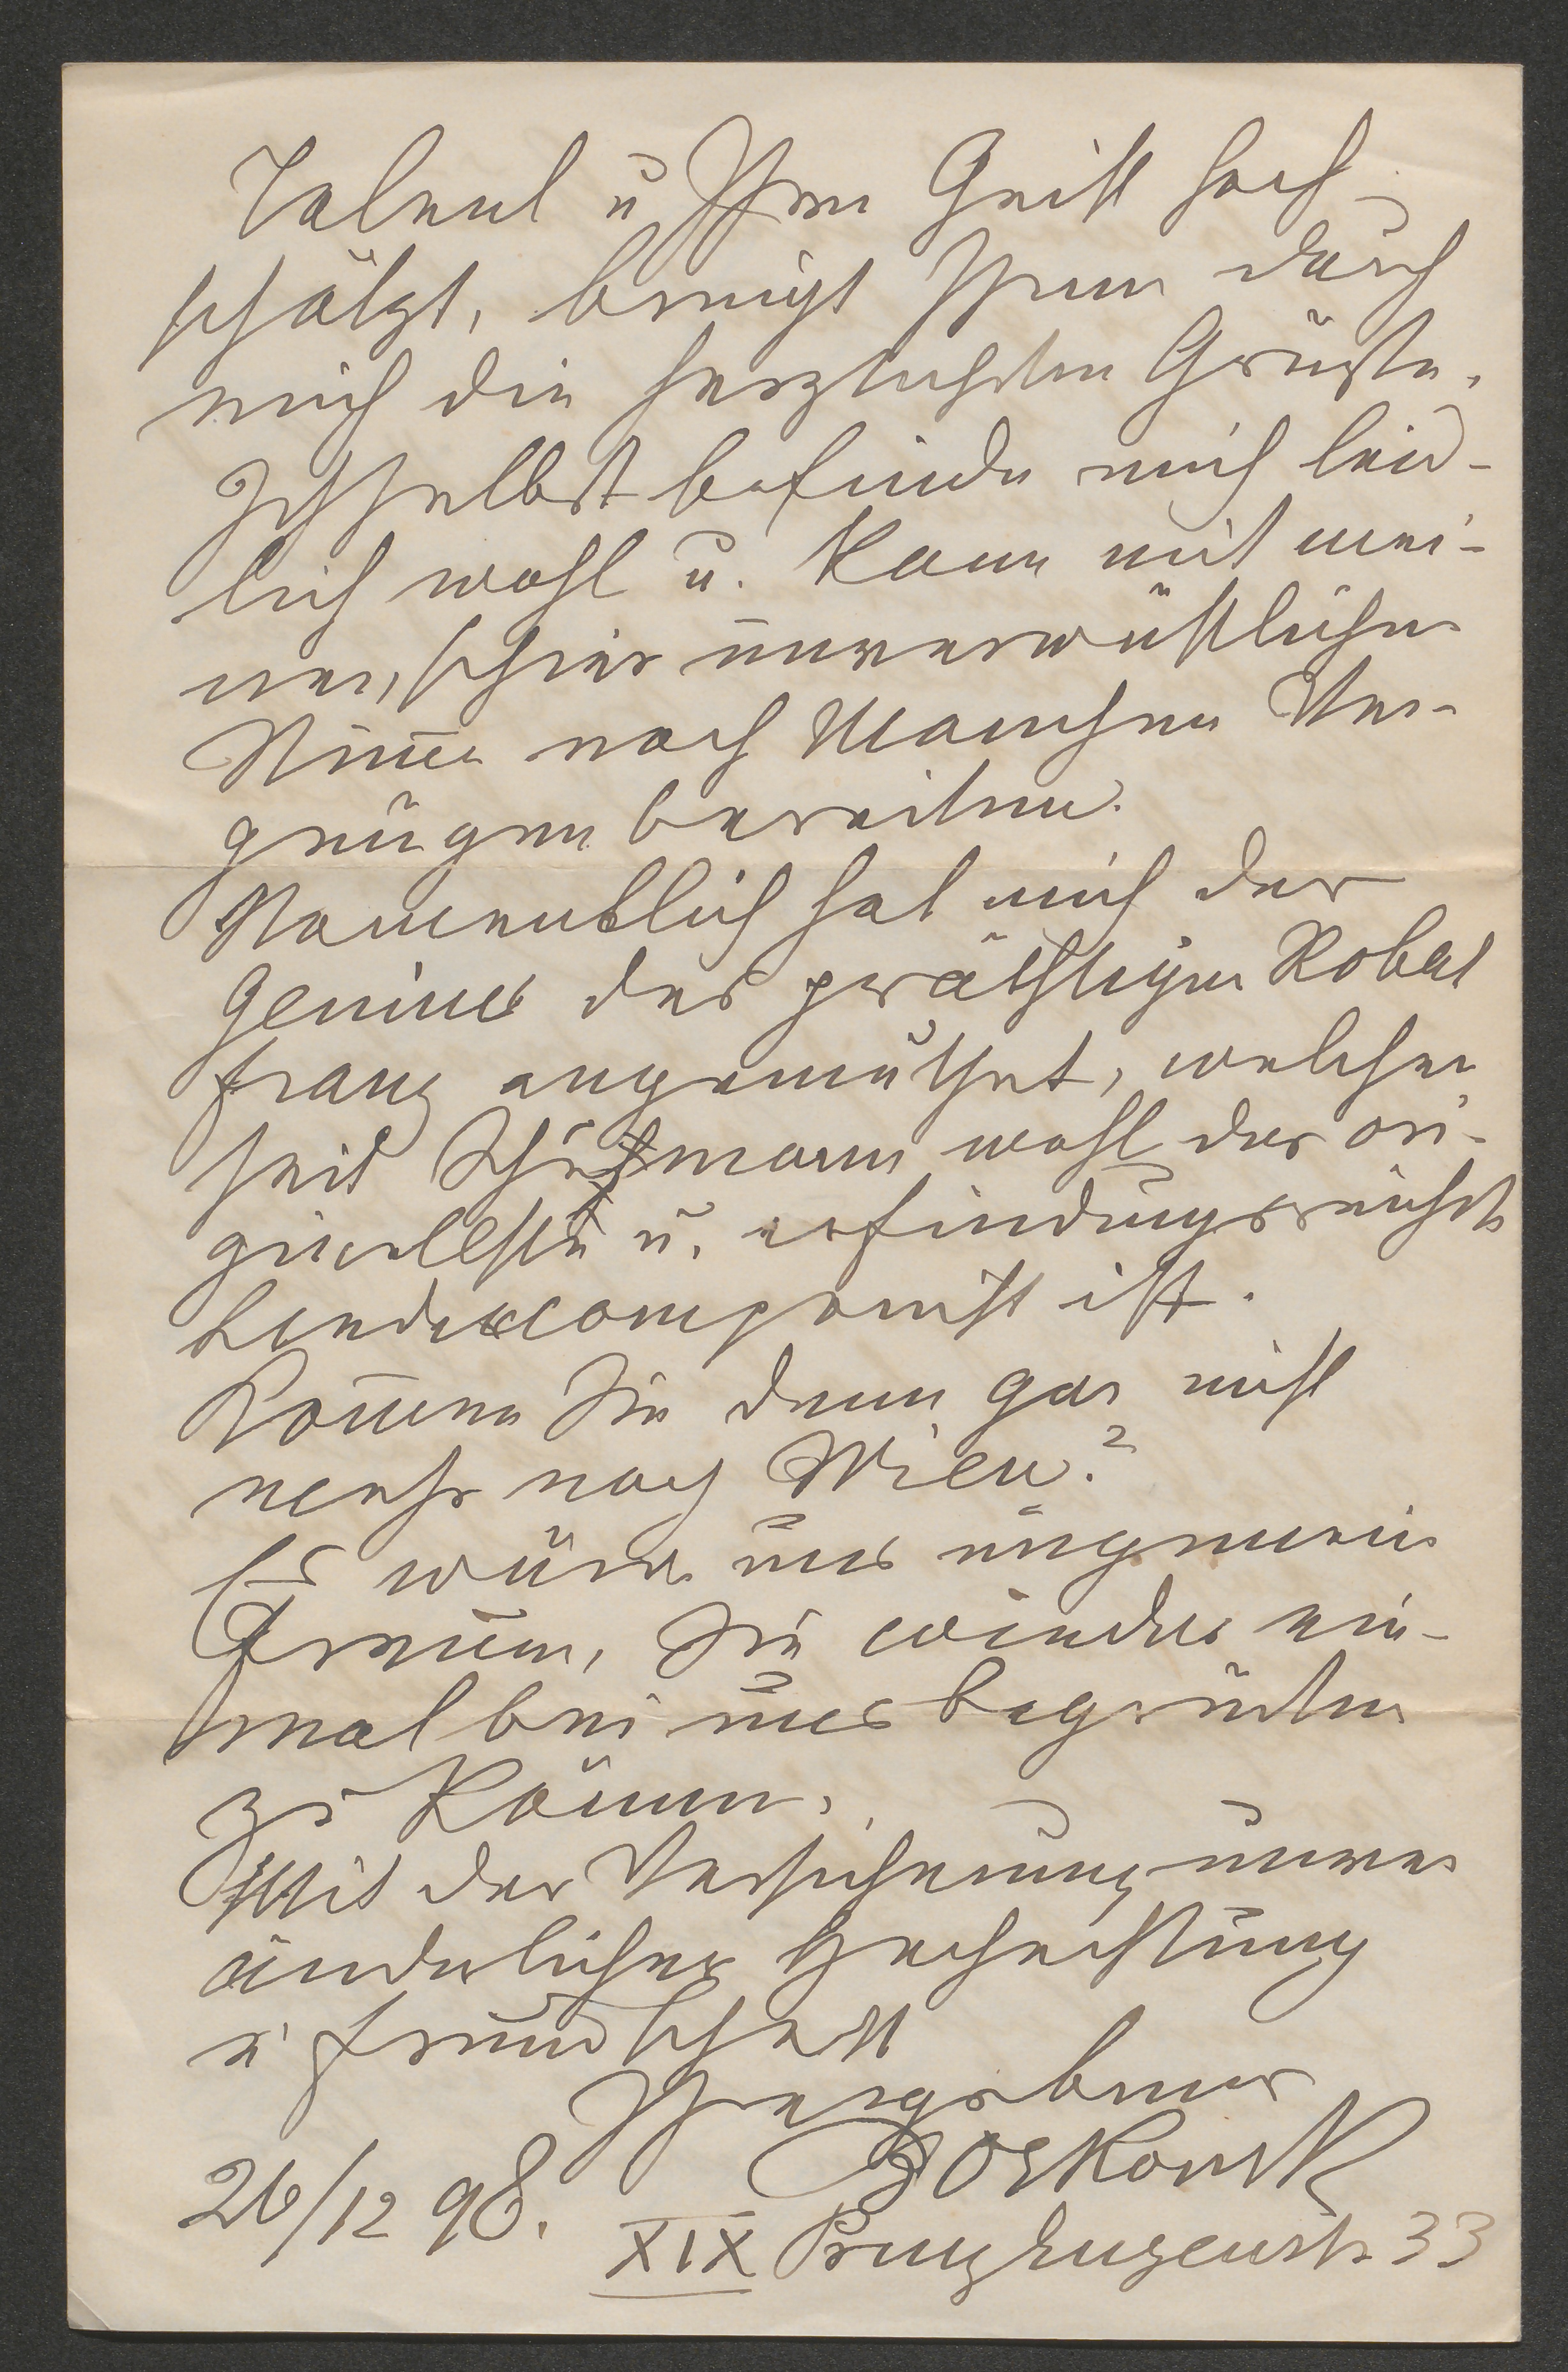 Talent u Ihren Geist hoch-
schätzt, bringt Ihnen durch
mich die herzlichsten Grüße.
Ich selbst befinde mich leid-
lich wohl u. kann mit mei-
ner, schier unverwüstlichen
Stime noch Manchen Ver-
gnügen bereiten.
Namentlich hat mich der
Genius des prächtigen Robet
Franz angemuthet, welcher
seit Schumann wohl der ori-
ginellste u. erfindungsreichste
Liedercomponist ist.
Komen Sie denn gar nicht
mehr nach Wien?
Es würde uns ungemein
freuen, Sie wieder ein-
mal bei uns begrüßen
zu können.
Mit der Versicherung unver
änderlicher Hochachtung
u Freundschaft
Ihr ergebener
26/12 98.
XIX Prinz Eugenstr 33